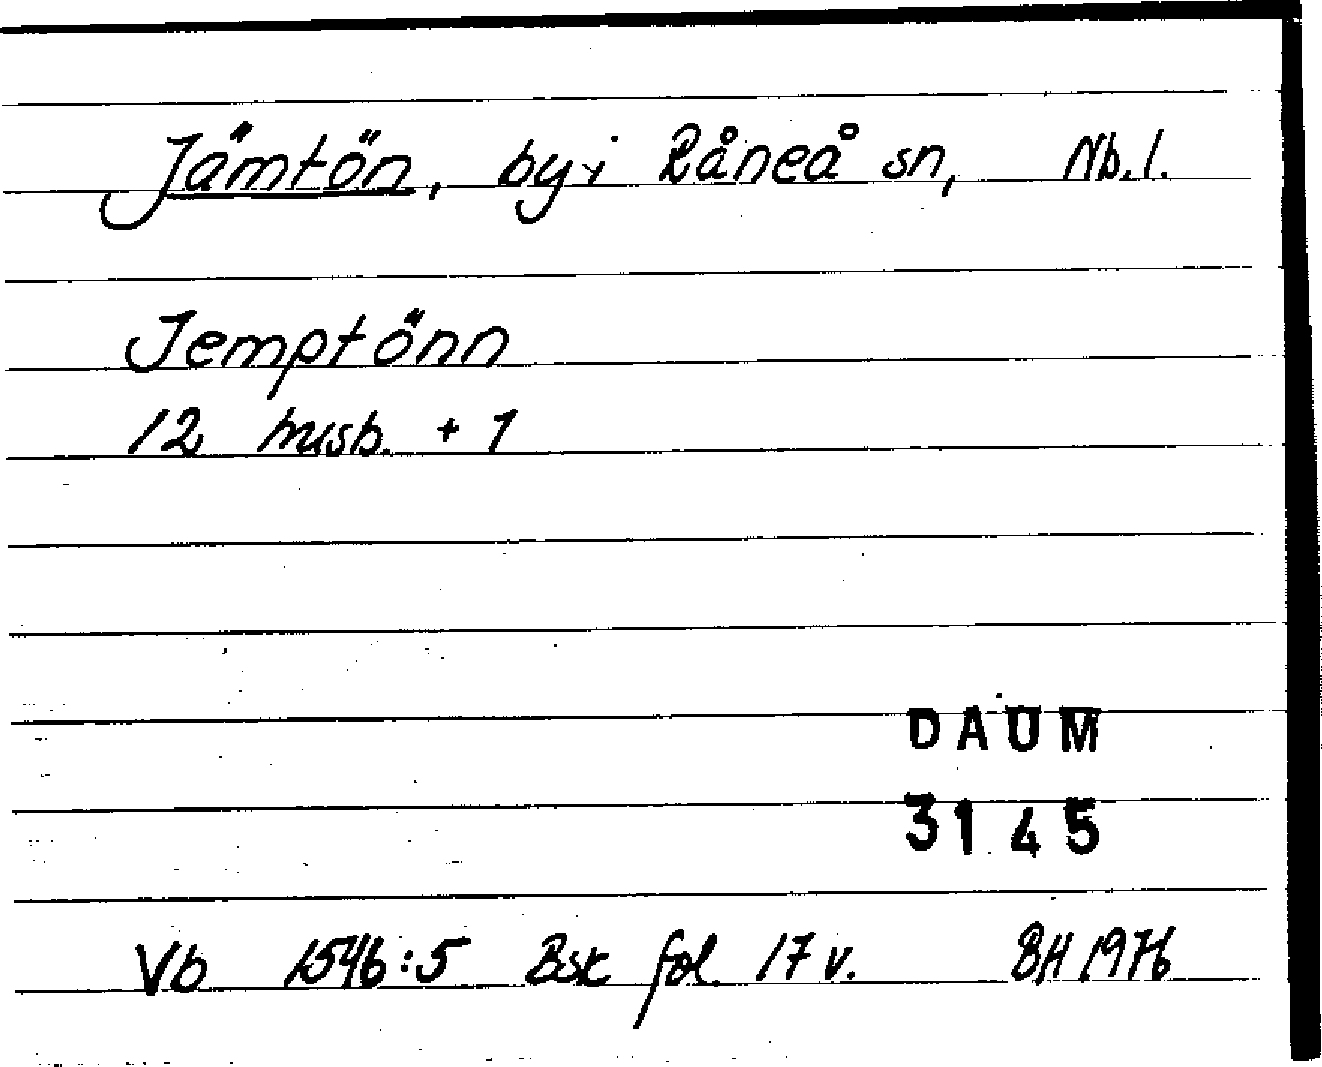 Jämtön, by i Råneå sn, Nb.l.
Jemptönn
12 husb. + 1
DAUM
3145
Vb 1546:5 Bsk fol 17 v. BH 1976